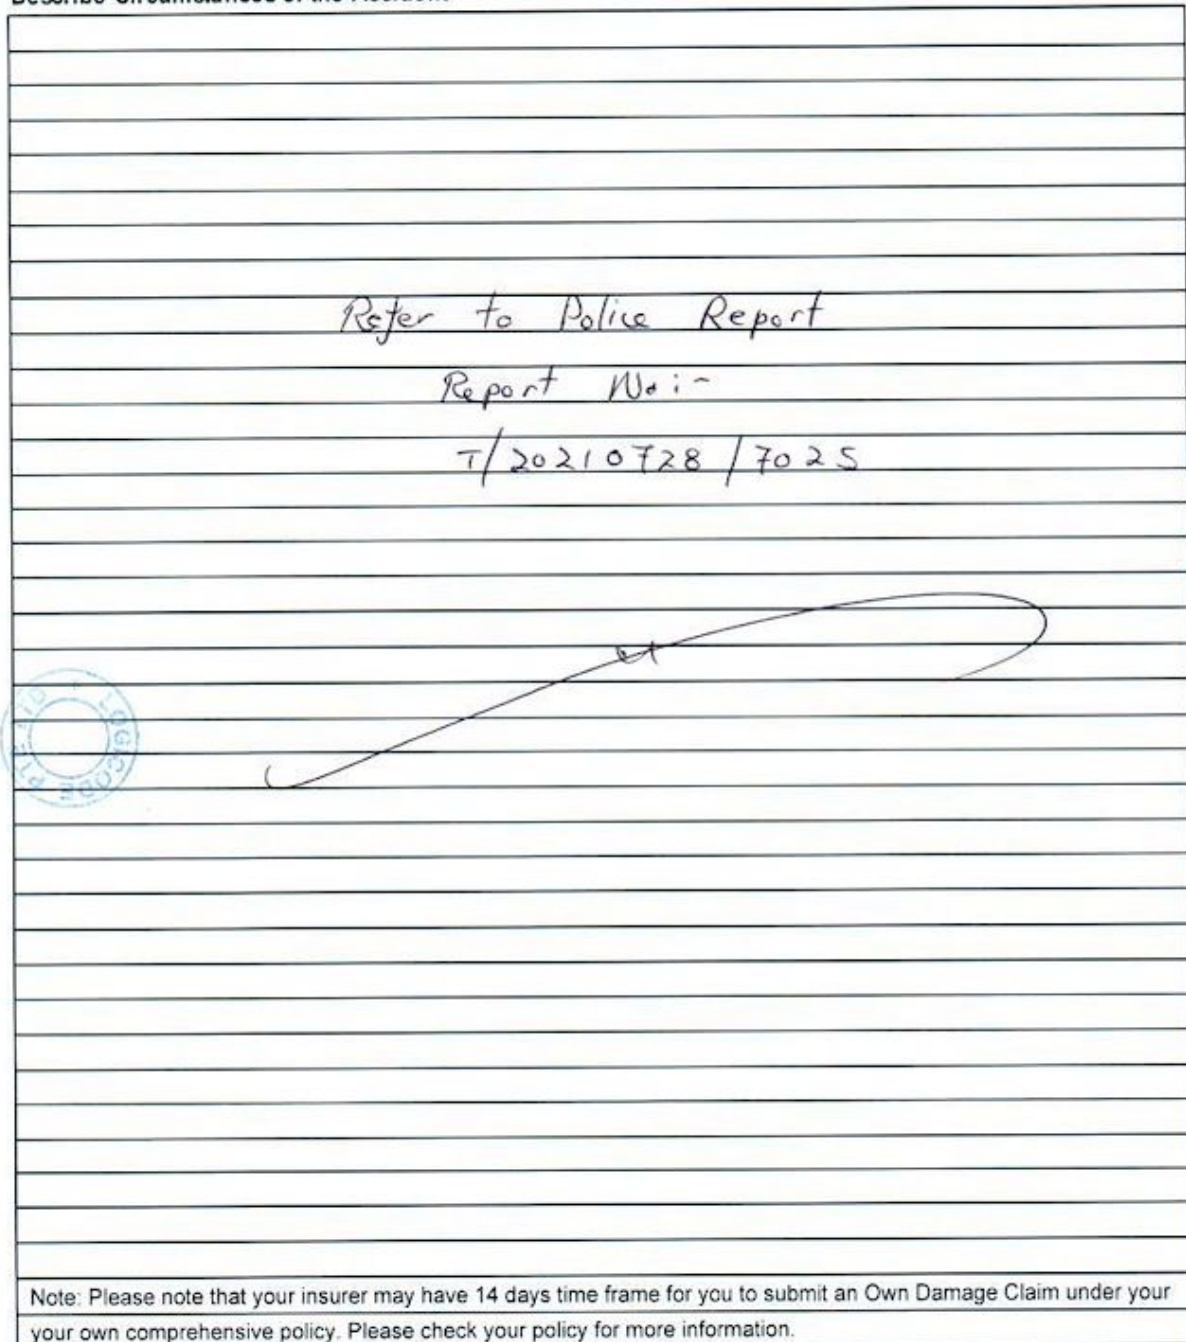 Describe Circumstances of the Accident
Refer to Police Report
Report No:-
T/20210728/7025
LOGICODE PTE LTD
Note: Please note that your insurer may have 14 days time frame for you to submit an Own Damage Claim under your
your own comprehensive policy. Please check your policy for more information.